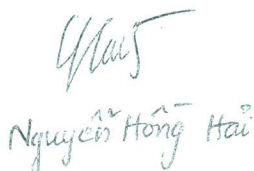 Nguyễn Hồng Hải